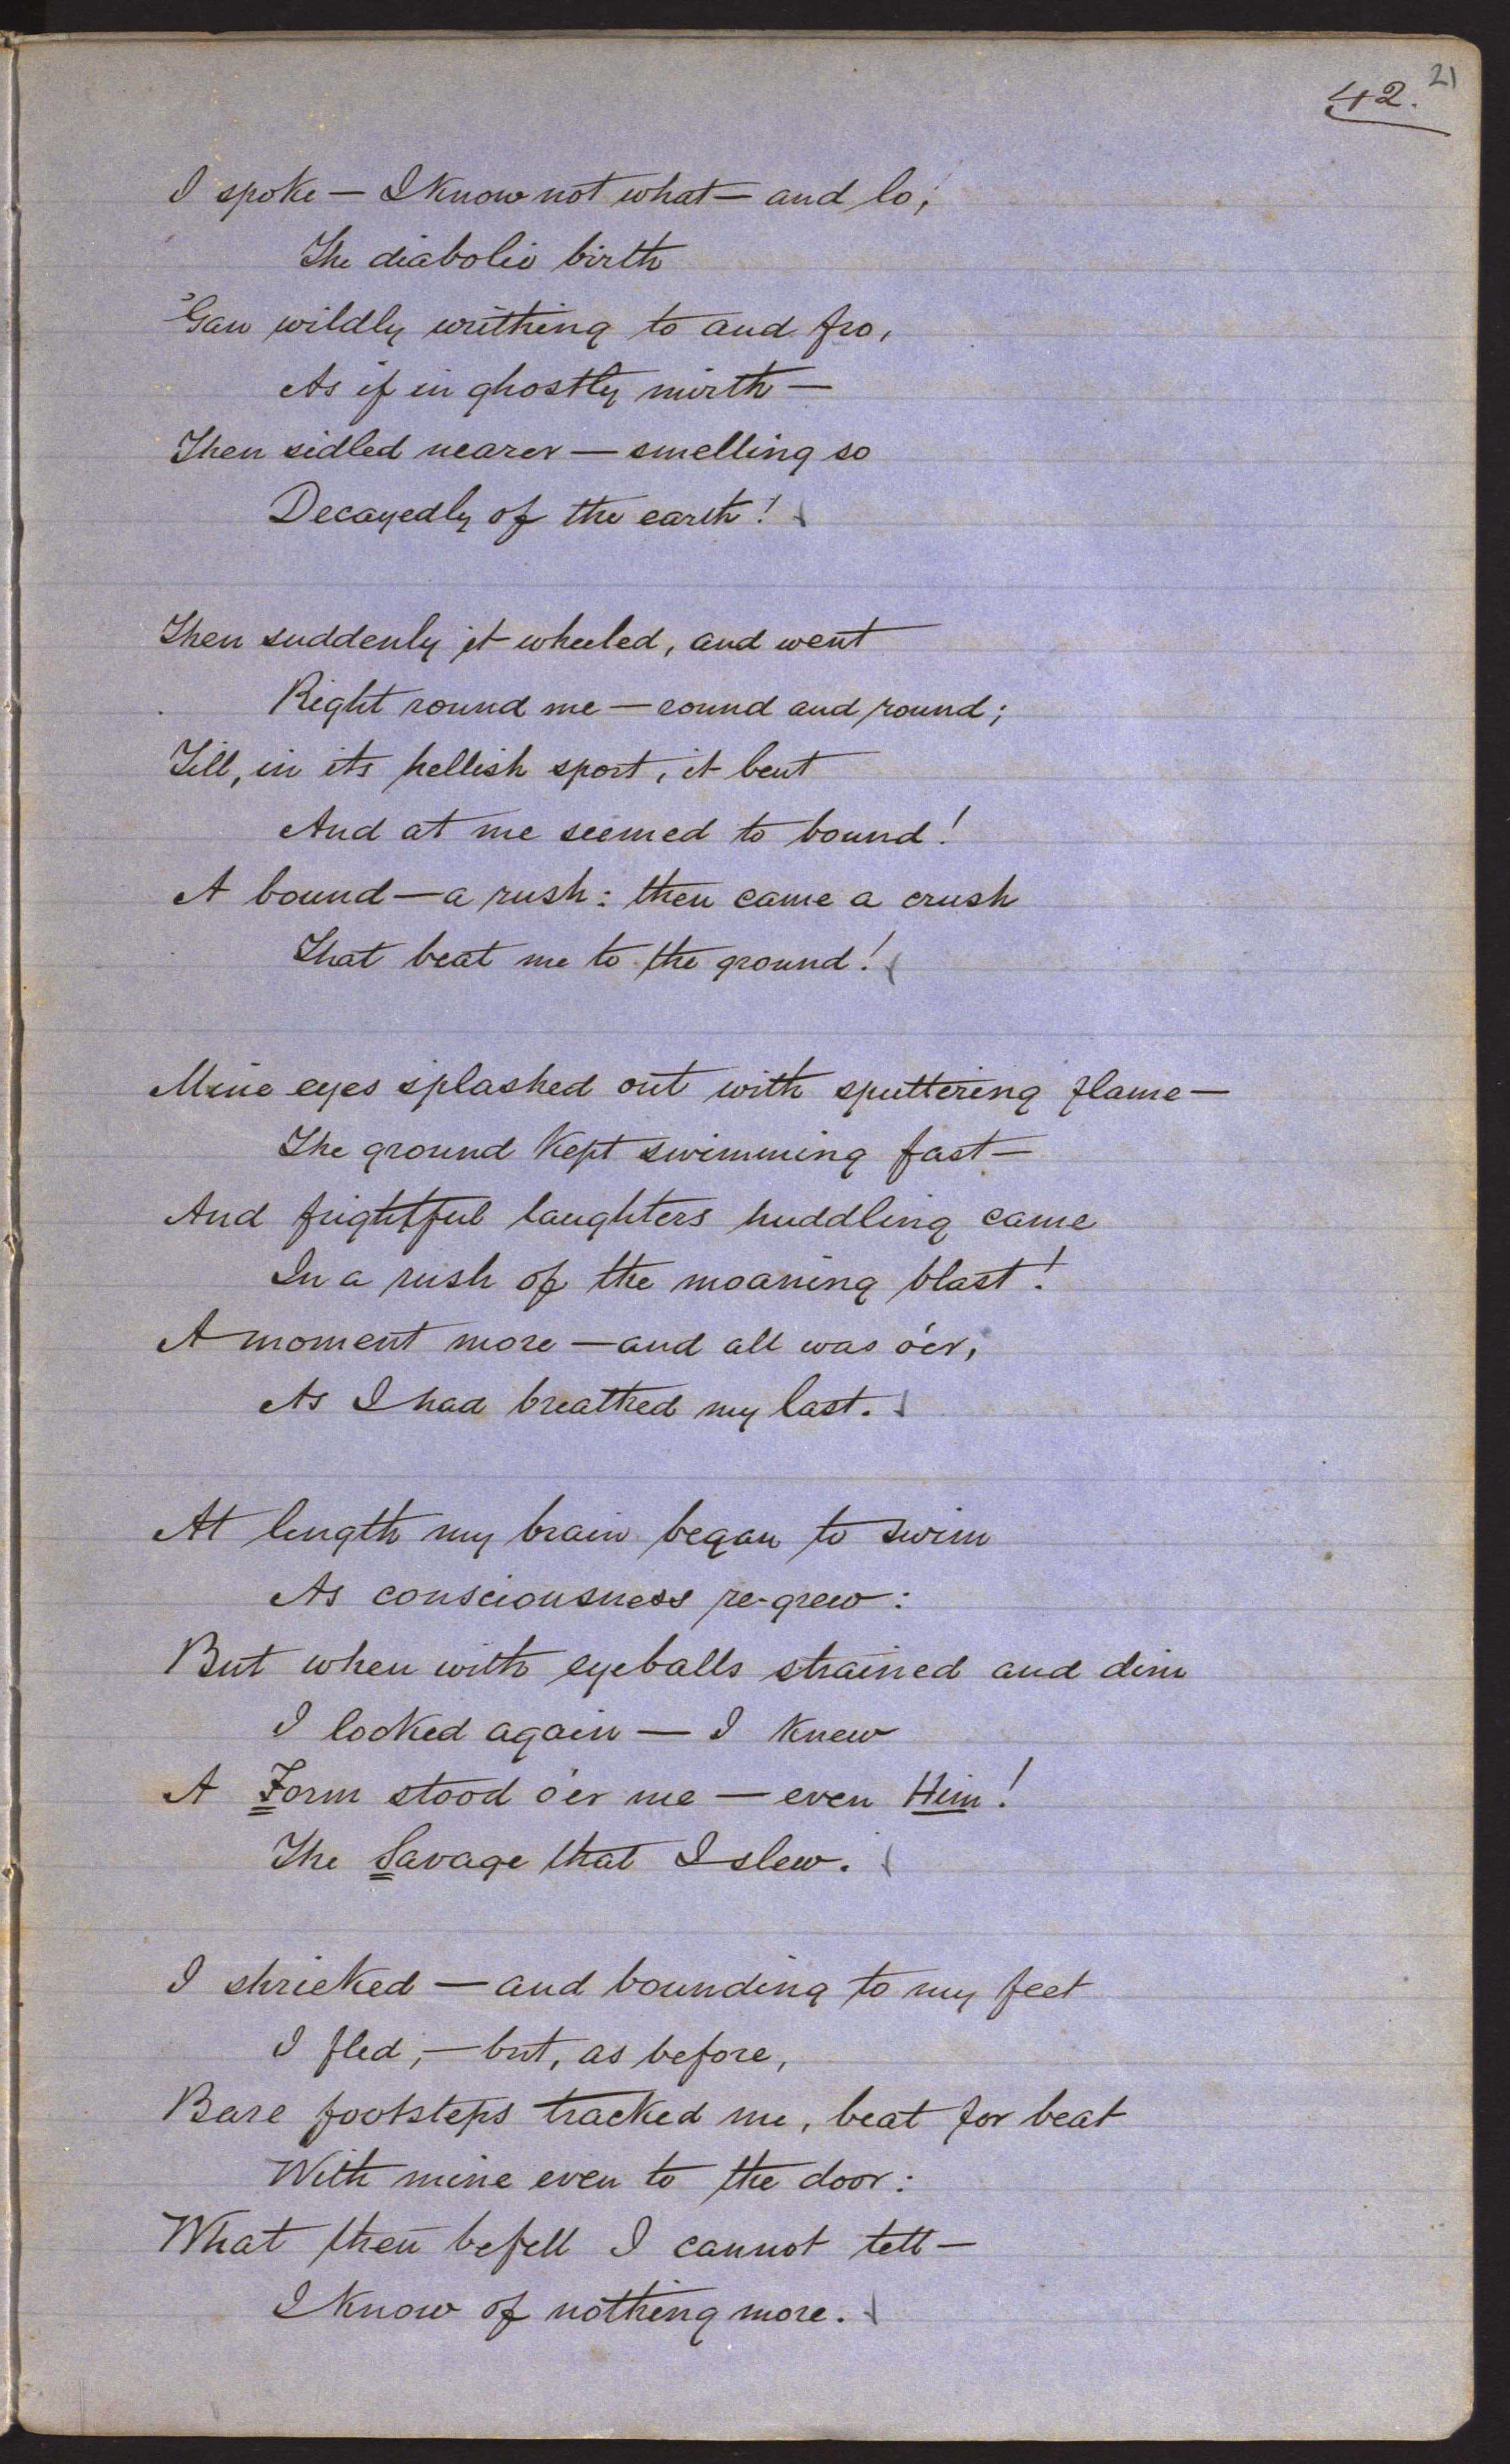 42. 21
I spoke — I know not what — and lo;
The diabolic birth
'Gan wildly writhing to and fro,
As if in ghostly mirth —
Then sidled nearer — smelling so
Decayedly of the earth!
Then suddenly it wheeled, and went
Right round me — round and round;
Till, in its hellish sport, it bent
And at me seemed to bound!
A bound — a rush: then came a crush
That beat me to the ground!
Mine eyes splashed out with sputtering flame —
The ground kept swimming fast —
And frightful laughters huddling came
In a rush of the moaning blast!
A moment more — and all was o'er,
As I had breathed my last.
At length my brain began to swim
As consciousness re-grew:
But when with eyeballs strained and dim
I looked again — I knew
A Form stood o'er me — even Him!
The Savage that I slew.
I shrieked — and bounding to my feet
I fled; — but, as before,
Bare footsteps tracked me, beat for beat
With mine even to the door:
What then befell I cannot tell —
I know of nothing more.